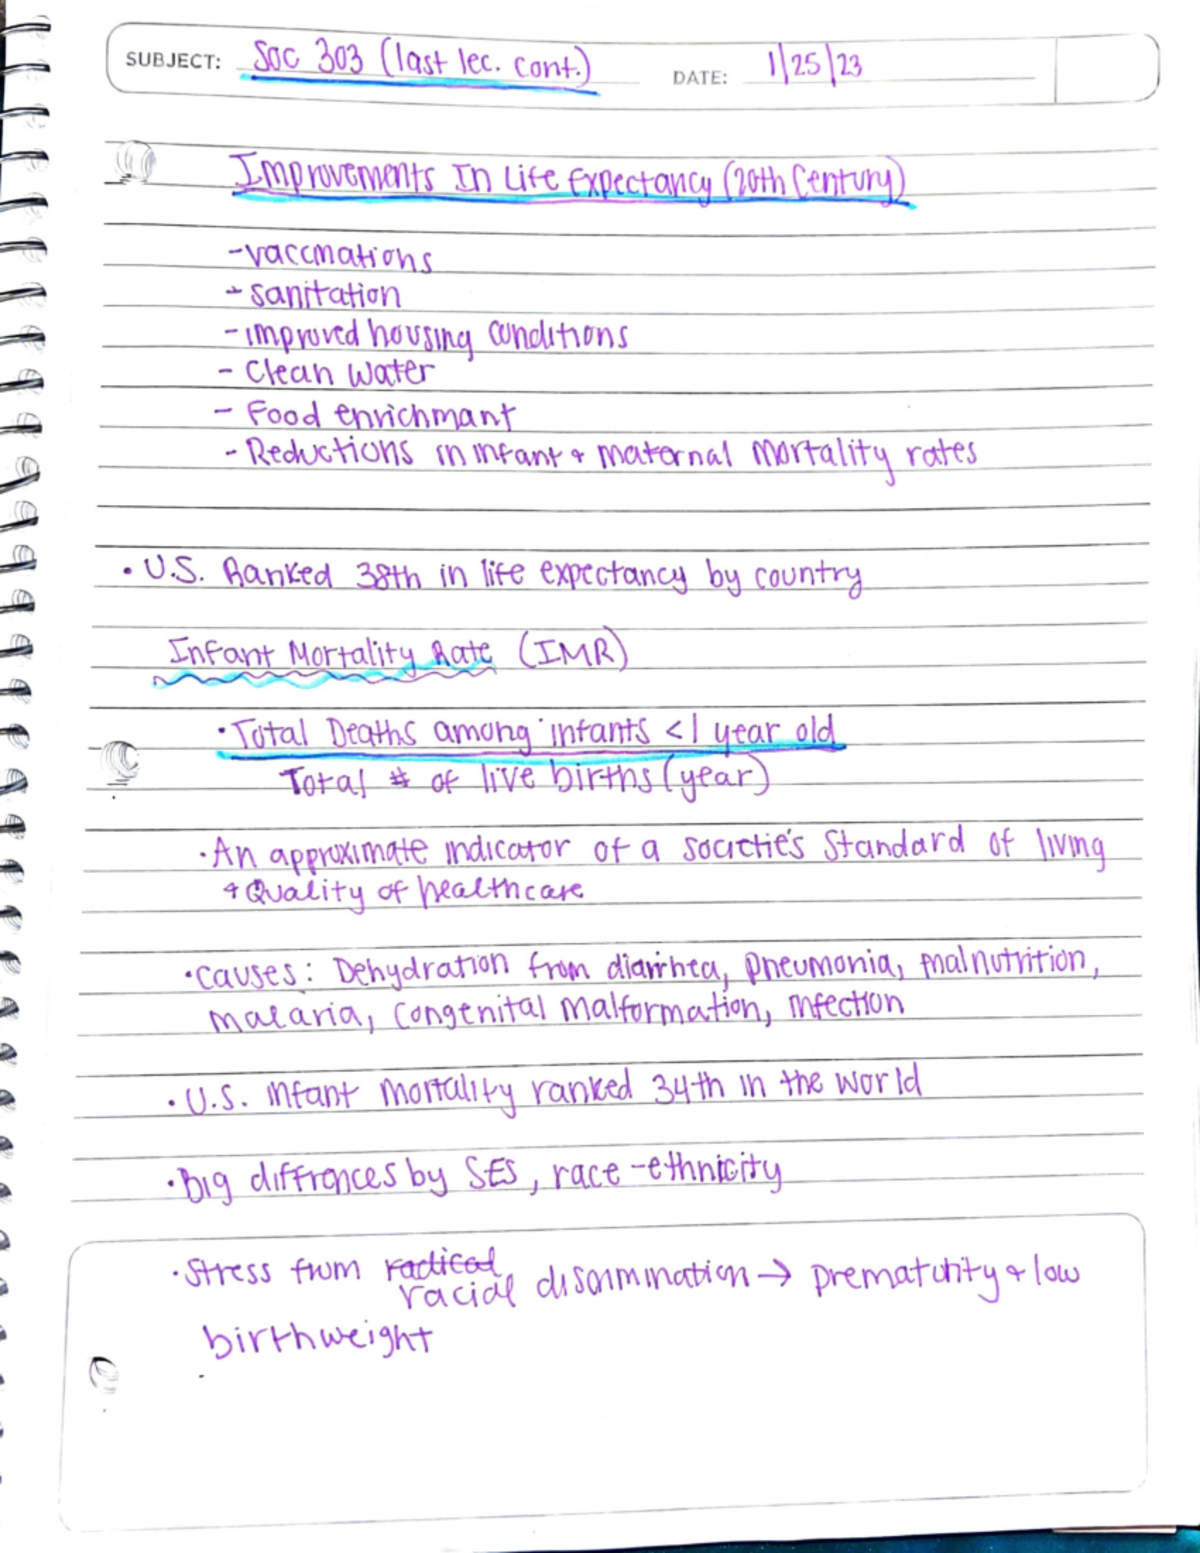 SUBJECT: Soc 303 (last lec. cont.) DATE: 1/25/23
Improvements In Life Expectancy (20th Century)
- vaccinations
- sanitation
- improved housing conditions
- Clean water
- Food enrichmant
- Reductions in infant + maternal mortality rates
• U.S. Ranked 38th in life expectancy by country
Infant Mortality Rate (IMR)
• Total Deaths among infants < 1 year old
Total # of live births (year)
• An approximate indicator of a societie's standard of living
+ Quality of healthcare
• Causes: Dehydration from diarrhea, pneumonia, malnutrition,
malaria, congenital malformation, infection
• U.S. infant mortality ranked 34th in the world
• Big diffrences by SES, race-ethnicity
• Stress from radical racial discrimination → prematurity + low
birthweight